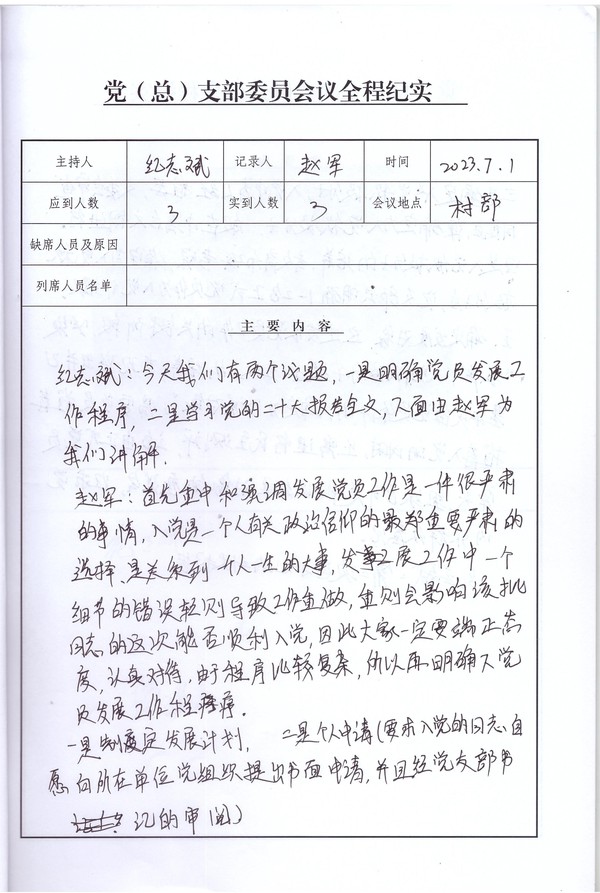 党（总）支部委员会议全程纪实
主持人 纪志斌 记录人 赵军 时间 2023.7.1
应到人数 3 实到人数 3 会议地点 村部
缺席人员及原因
列席人员名单
主要内容
纪志斌：今天我们有两个议题，一是明确党员发展工
作程序，二是学习党的二十大报告全文，下面由赵军为
我们讲解.
赵军：首先重申和强调发展党员工作是一件很严肃
的事情，入党是一个人有关政治信仰的最郑重要严肃的
选择，是关系到个人一生的大事，发展工作中一个
细节的错误轻则导致工作重做，重则会影响该批
同志的这次能否顺利入党，因此大家一定要端正态
度，认真对待，由于程序比较复杂，所以再明确入党
员发展工作程序.
一是制定发展计划， 二是个人申请（要求入党的同志自
愿向所在单位党组织提出书面申请，并且经党支部书
记的审阅）